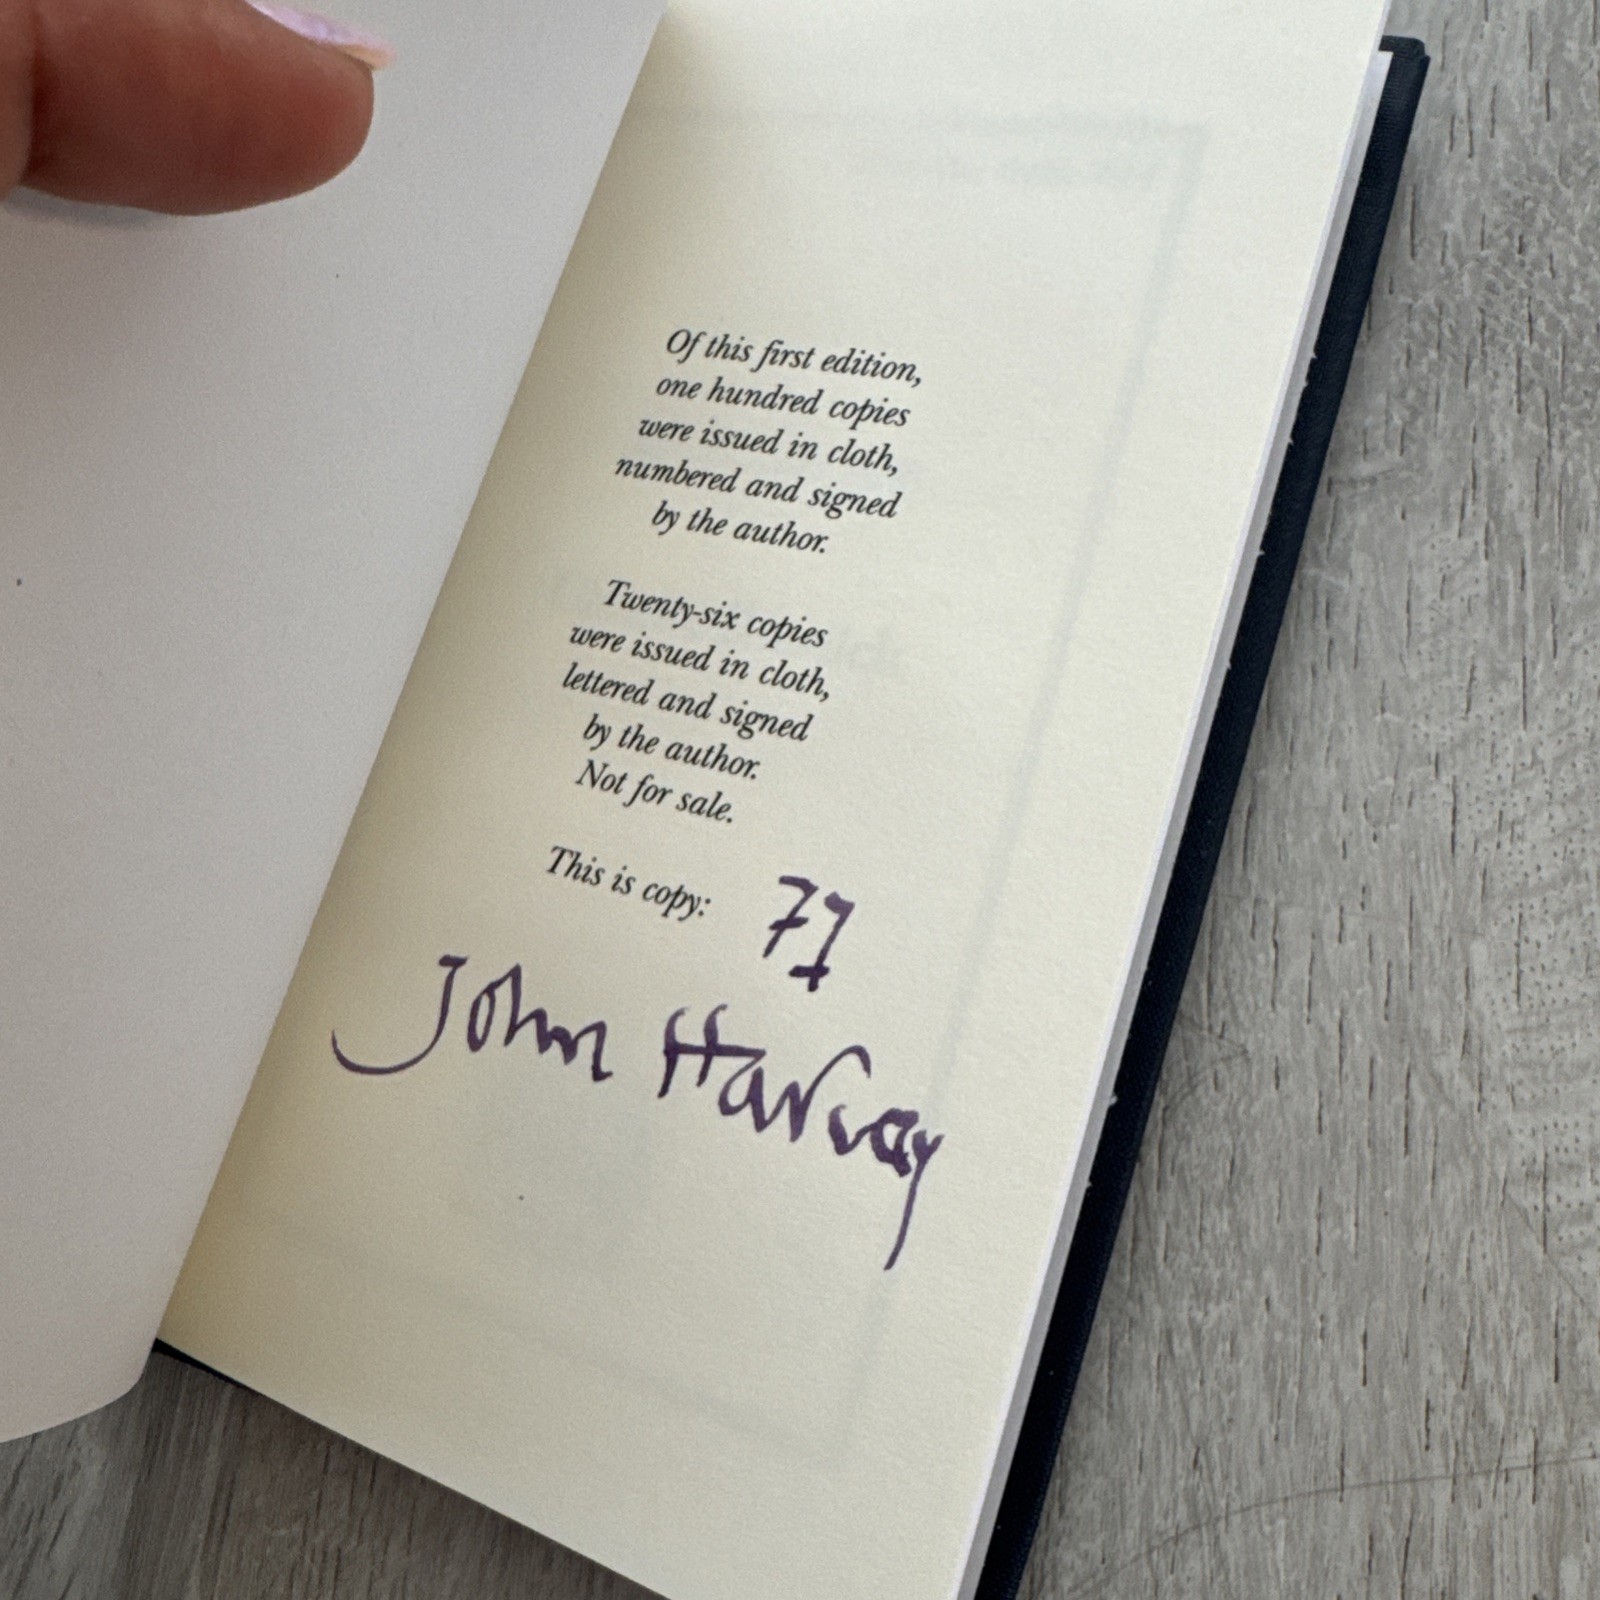 Of this first edition,
one hundred copies
were issued in cloth,
numbered and signed
by the author.
Twenty-six copies
were issued in cloth,
lettered and signed
by the author.
Not for sale.
This is copy: 71
John Harvey